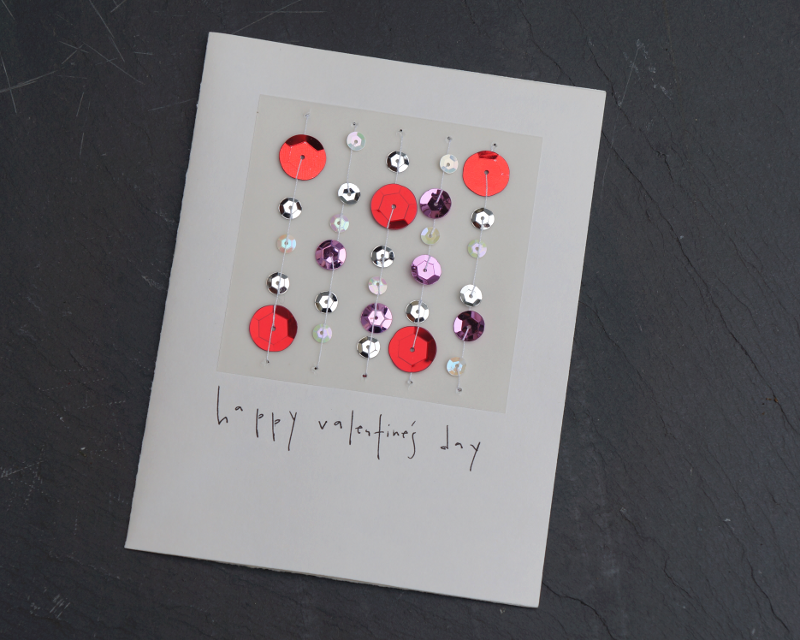 happy valentine's day